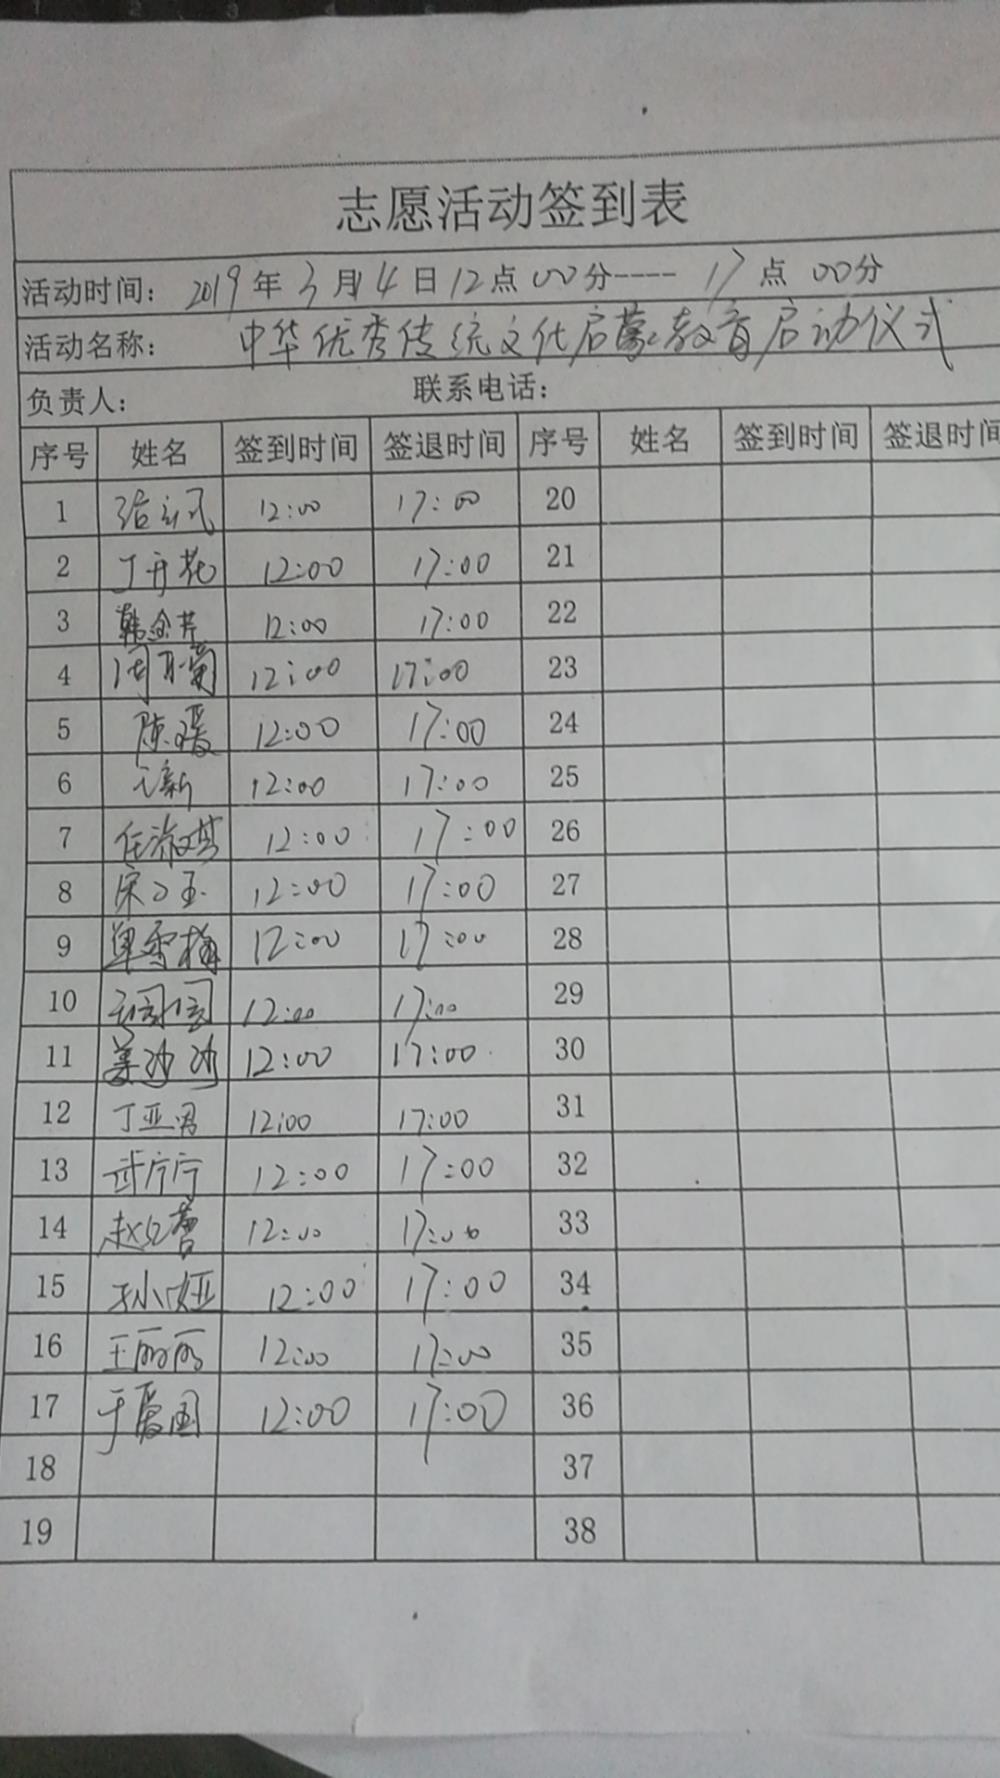 志愿活动签到表
活动时间: 2019年3月4日12点00分----17点00分
活动名称: 中华优秀传统文化启蒙教育启动仪式
负责人: 联系电话:
序号 姓名 签到时间 签退时间 序号 姓名 签到时间 签退时间
1 12:00 17:00 20
2 丁开花 12:00 17:00 21
3 韩金芹 12:00 17:00 22
4 12:00 17:00 23
5 陈瑷 12:00 17:00 24
6 12:00 17:00 25
7 任淑琪 12:00 17:00 26
8 12:00 17:00 27
9 单雪梅 12:00 17:00 28
10 12:00 17:00 29
11 姜沙沙 12:00 17:00 30
12 丁亚男 12:00 17:00 31
13 武宁宁 12:00 17:00 32
14 12:00 17:00 33
15 孙娅 12:00 17:00 34
16 王丽丽 12:00 17:00 35
17 于爱国 12:00 17:00 36
18 37
19 38